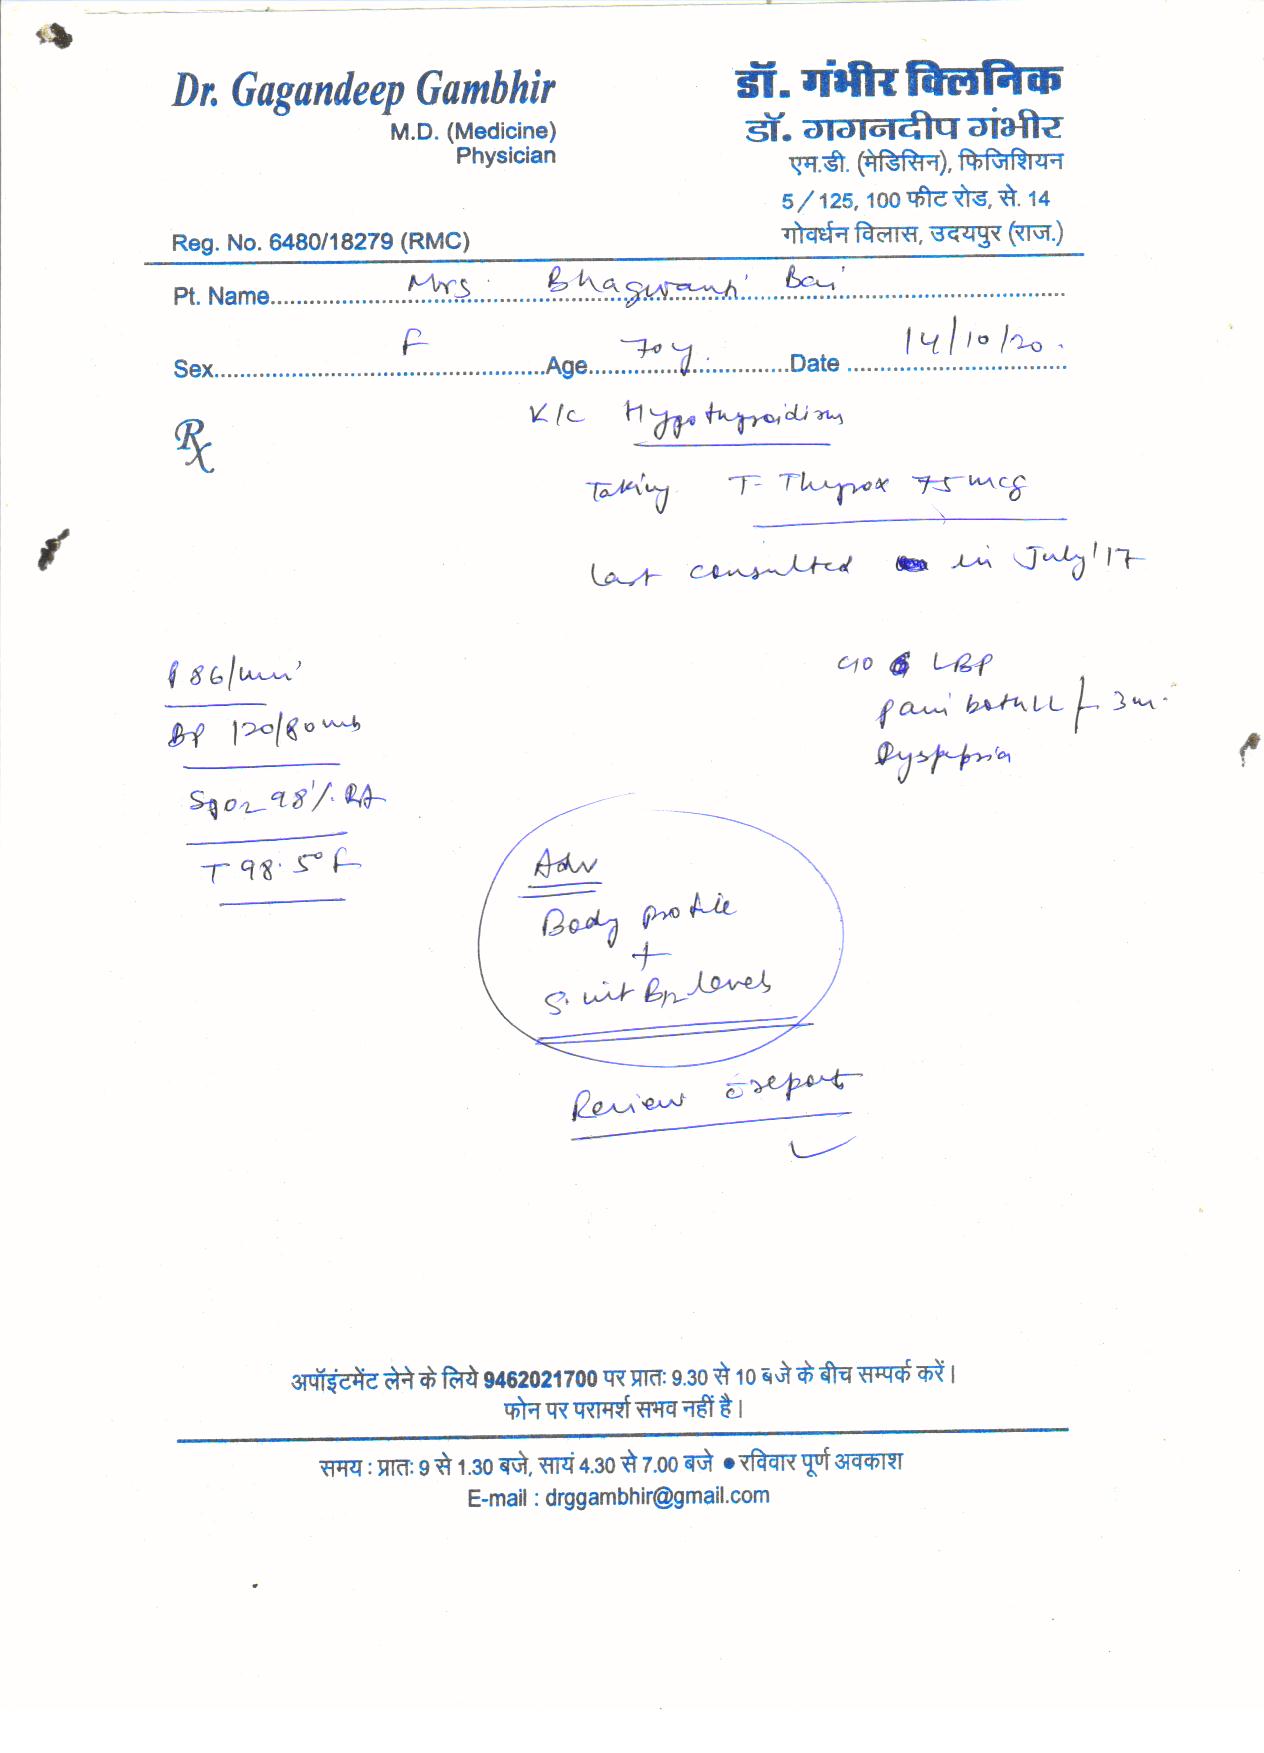 Dr. Gagandeep Gambhir
M.D. (Medicine)
Physician
Reg. No. 6480/18279 (RMC)
डॉ. गंभीर क्लिनिक
डॉ. गगनदीप गंभीर
एम.डी. (मेडिसिन), फिजिशियन
5 / 125, 100 फीट रोड, से. 14
गोवर्धन विलास, उदयपुर (राज.)
Pt. Name Mrs. Bhagwanti Bai
Sex F Age 70y. Date 14/10/20.
Rx
K/c Hypothyroidism
Taking T- Thyrox 75 mcg
last consulted in July'17
P 86/min
BP 120/80
SpO2 98% RA
T 98.5°F
C/O LBP
pain both LL 3m.
Dyspepsia
Adv
Body profile
+
S. Vit B12 levels
Review c̄ report
अपॉइंटमेंट लेने के लिये 9462021700 पर प्रातः 9.30 से 10 बजे के बीच सम्पर्क करें।
फोन पर परामर्श सभव नहीं है।
समय : प्रातः 9 से 1.30 बजे, सायं 4.30 से 7.00 बजे ● रविवार पूर्ण अवकाश
E-mail : drggambhir@gmail.com